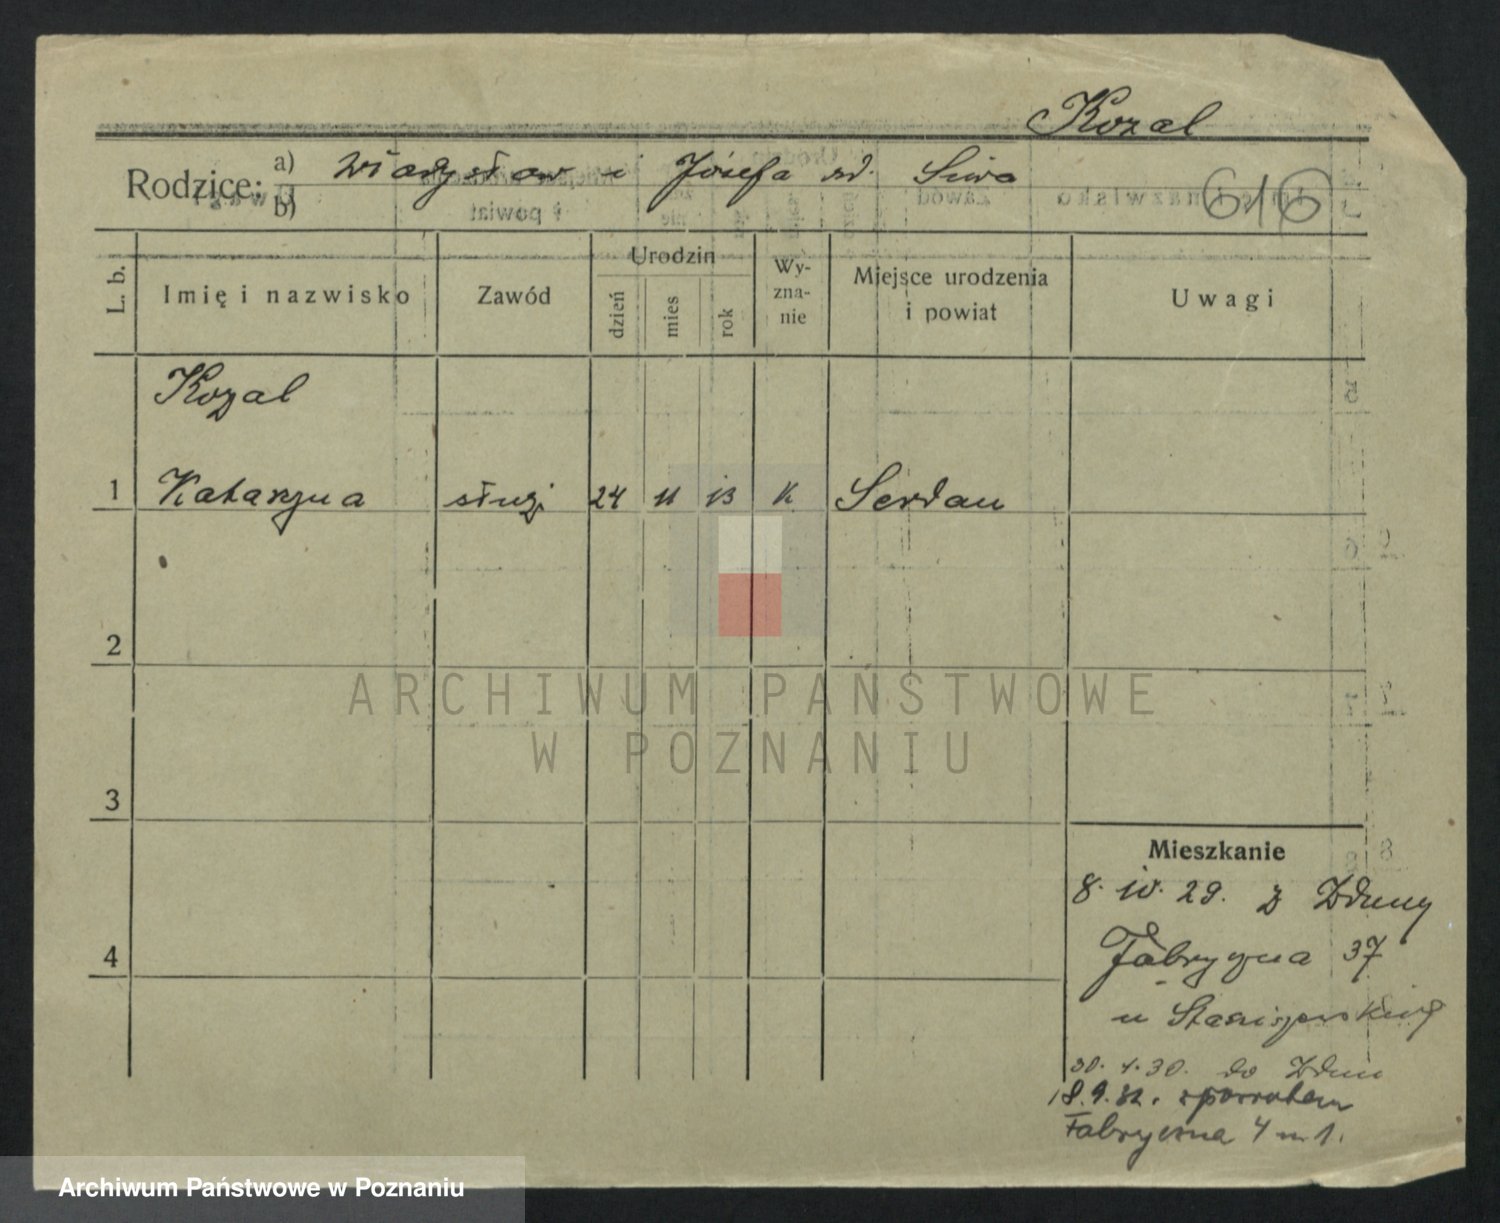 Kozal
Rodzice: a) Władysław i Józefa rd. Siwa
b)
616
L. b. Imię i nazwisko Zawód Urodzin dzień mies rok Wy-zna-nie Miejsce urodzenia i powiat Uwagi
Kozal
1 Katarzyna służ. 24 11 13 k Serdau
2
3
4
Mieszkanie
8. IV. 29. z Zduny
Fabryczna 37
u Staniszewskiej
30. 1. 30. do Zdun
18.9.32. zpowrotem
Fabryczna 4 m 1.
ARCHIWUM PAŃSTWOWE
W POZNANIU
Archiwum Państwowe w Poznaniu